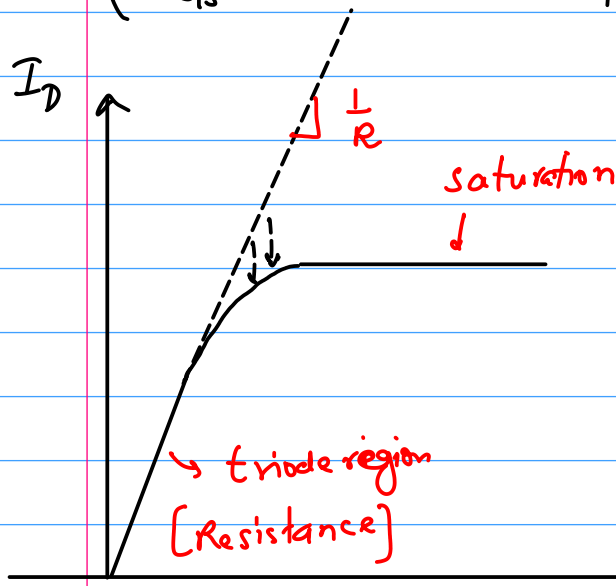 I_D
1/R
saturation
triode region
[Resistance]